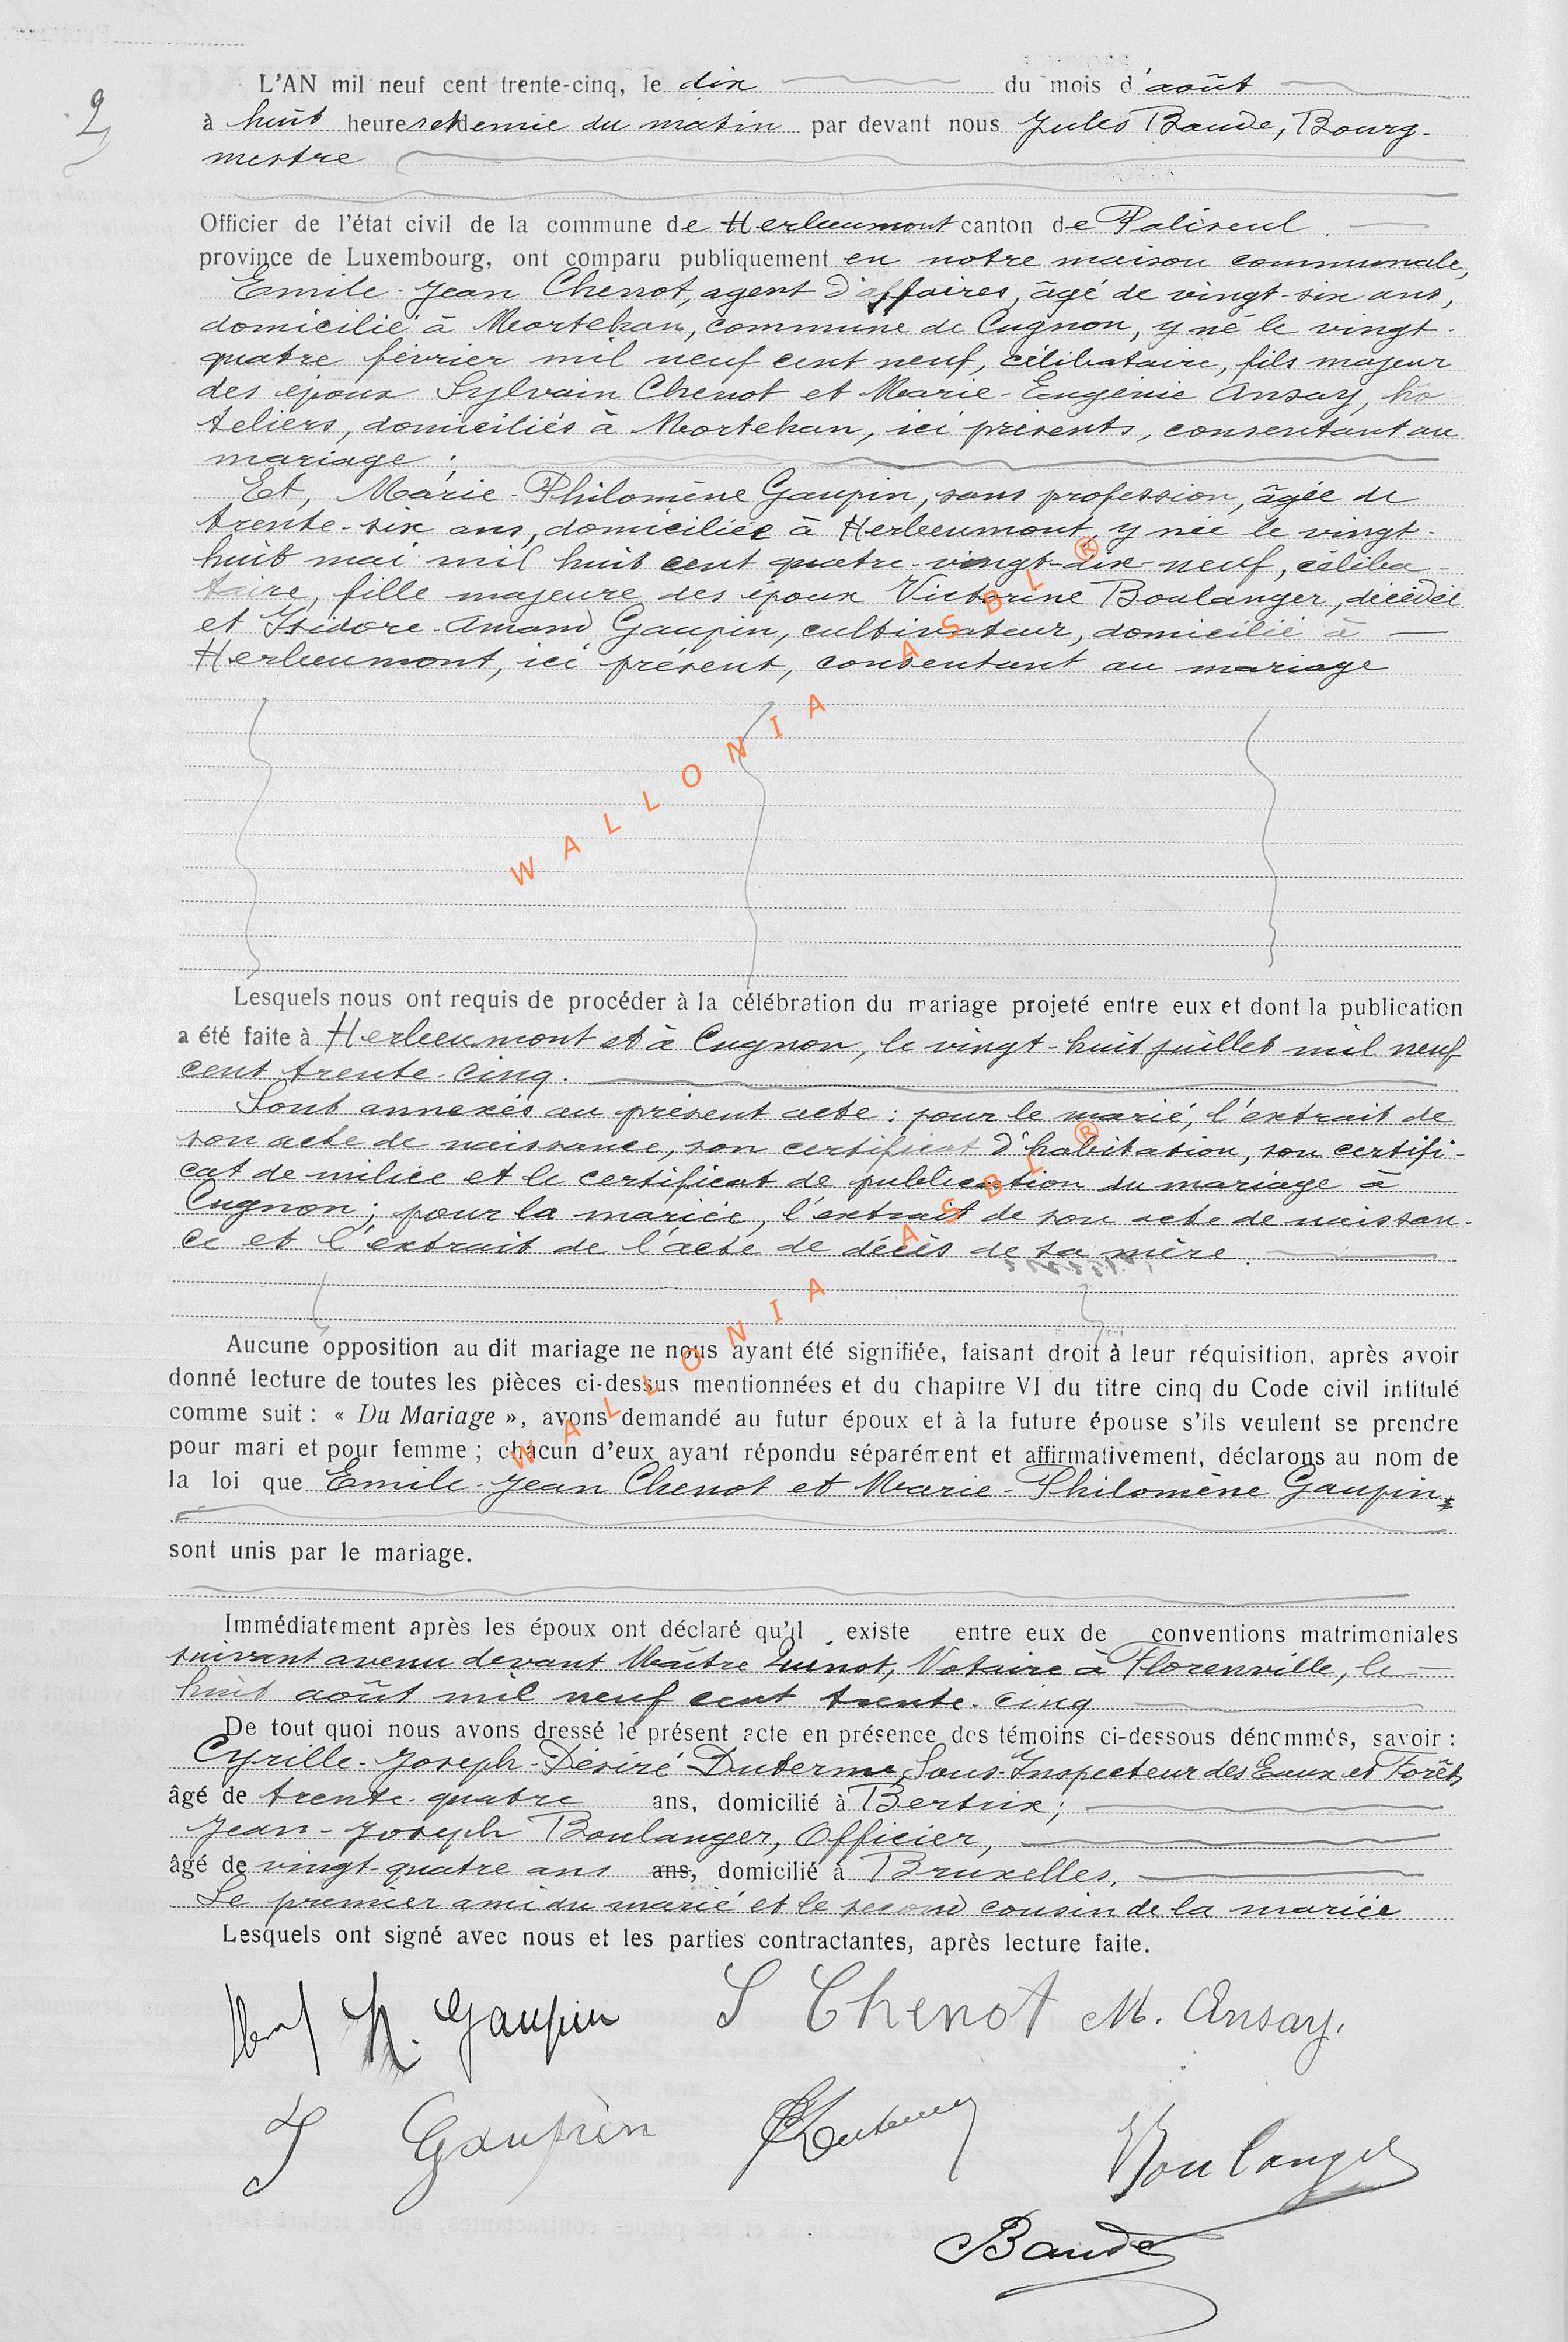 L'AN mil neuf cent trente-cinq, le dix du mois d'août
2
à huit heures et demie du matin par devant nous Jules Baude, Bourg-
mestre
Officier de l'état civil de la commune de Herbeumont canton de Paliseul.
province de Luxembourg, ont comparu publiquement en notre maison communale,
Emile-Jean Chenot, agent d'affaires, âgé de vingt-six ans,
domicilié à Mortehan, commune de Cugnon, y né le vingt-
quatre février mil neuf cent neuf, célibataire, fils majeur
des époux Sylvain Chenot et Marie-Eugénie Ansay, hô-
teliers, domiciliés à Mortehan, ici présents, consentant au
mariage ;
Et, Marie-Philomène Gaupin, sans profession, âgée de
trente-six ans, domiciliée à Herbeumont, y née le vingt-
huit mai mil huit cent quatre-vingt-dix-neuf, céliba-
taire, fille majeure des époux Victorine Boulanger, décédée
et Isidore-Amand Gaupin, cultivateur, domicilié à
Herbeumont, ici présent, consentant au mariage
WALLONIA ASBL ®
Lesquels nous ont requis de procéder à la célébration du mariage projeté entre eux et dont la publication
a été faite à Herbeumont et à Cugnon, le vingt-huit juillet mil neuf
cent trente-cinq.
Sont annexés au présent acte : pour le marié, l'extrait de
son acte de naissance, son certificat d'habitation, son certifi-
cat de milice et le certificat de publication du mariage à
Cugnon ; pour la mariée, l'extrait de son acte de naissan-
ce et l'extrait de l'acte de décès de sa mère.
WALLONIA ASBL ®
Aucune opposition au dit mariage ne nous ayant été signifiée, faisant droit à leur réquisition, après avoir
donné lecture de toutes les pièces ci-dessus mentionnées et du chapitre VI du titre cinq du Code civil intitulé
comme suit : « Du Mariage », avons demandé au futur époux et à la future épouse s'ils veulent se prendre
pour mari et pour femme ; chacun d'eux ayant répondu séparément et affirmativement, déclarons au nom de
la loi que Emile-Jean Chenot et Marie-Philomène Gaupin
sont unis par le mariage.
Immédiatement après les époux ont déclaré qu'il existe entre eux de conventions matrimoniales
suivant avenu devant Maître Quinot, Notaire à Florenville, le
huit août mil neuf cent trente-cinq
De tout quoi nous avons dressé le présent acte en présence des témoins ci-dessous dénommés, savoir :
Cyrille-Joseph-Désiré Duterme, Sous-Inspecteur des Eaux et Forêts
âgé de trente-quatre ans, domicilié à Bertrix ;
Jean-Joseph Boulanger, Officier,
âgé de vingt-quatre ans ans, domicilié à Bruxelles.
Le premier ami du marié et le second cousin de la mariée
Lesquels ont signé avec nous et les parties contractantes, après lecture faite.
Gaupin S Chenot M. Ansay.
I Gaupin Duterme Boulanger
Baude